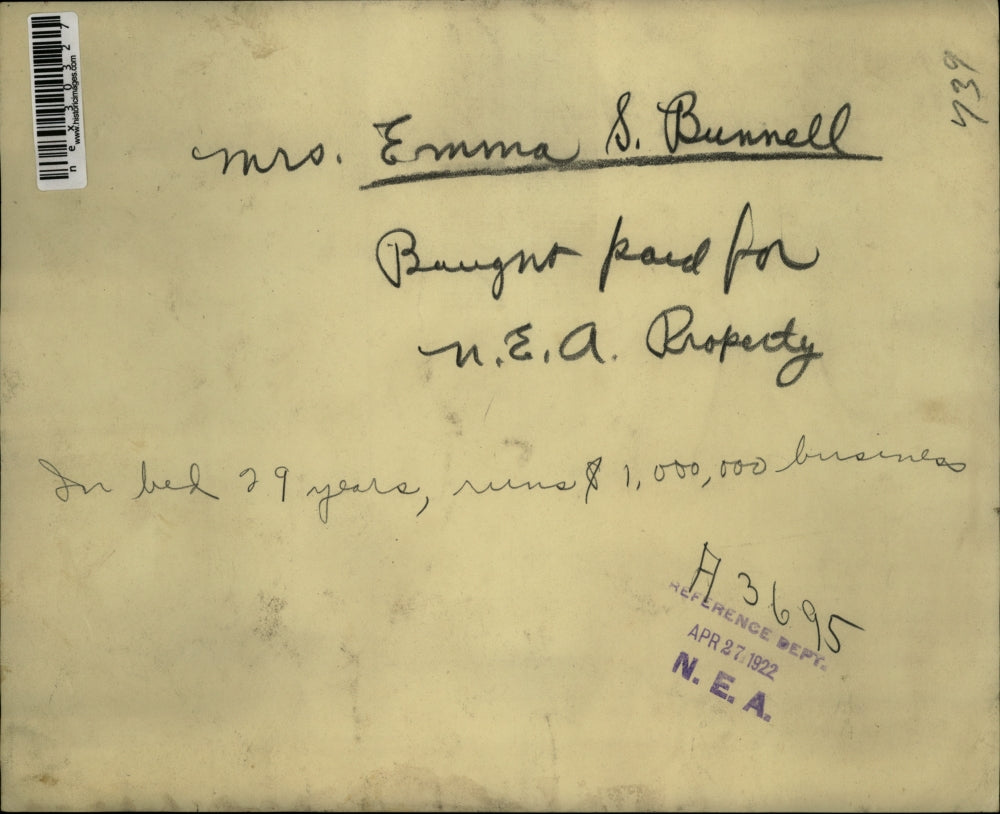 nex30327
www.historicimages.com
439
Mrs. Emma S. Bunnell
Bought paid for
N.E.A. Property
In bed 29 years, runs $1,000,000 business
A3695
REFERENCE DEPT.
APR 27 1922
N. E. A.